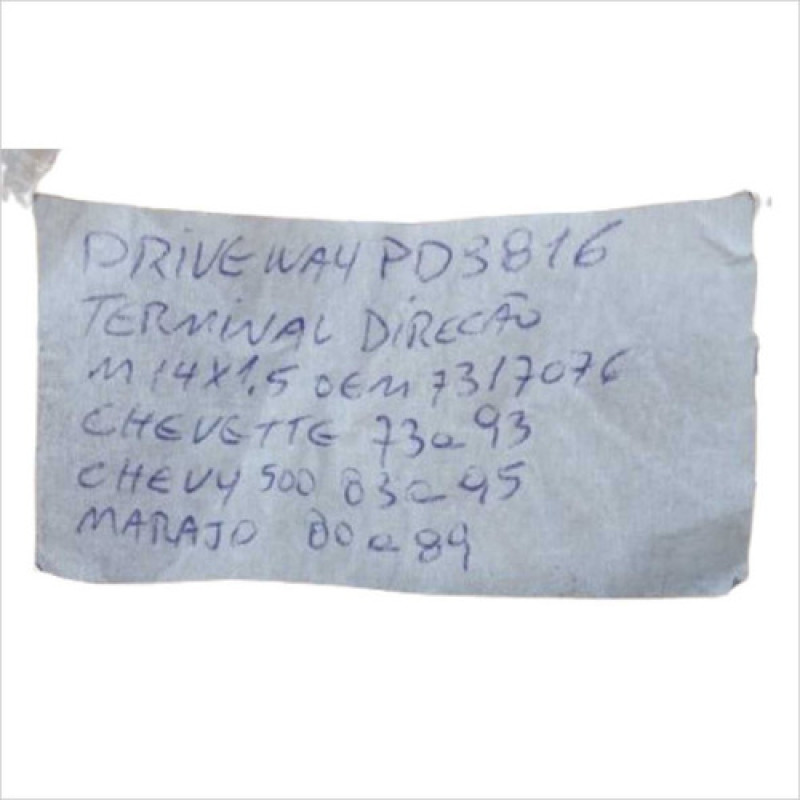 DRIVEWAY PD3816
TERMINAL DIREÇÃO
M14X1.5 OEM 7317076
CHEVETTE 73a93
CHEVY 500 83a95
MARAJO 80a89